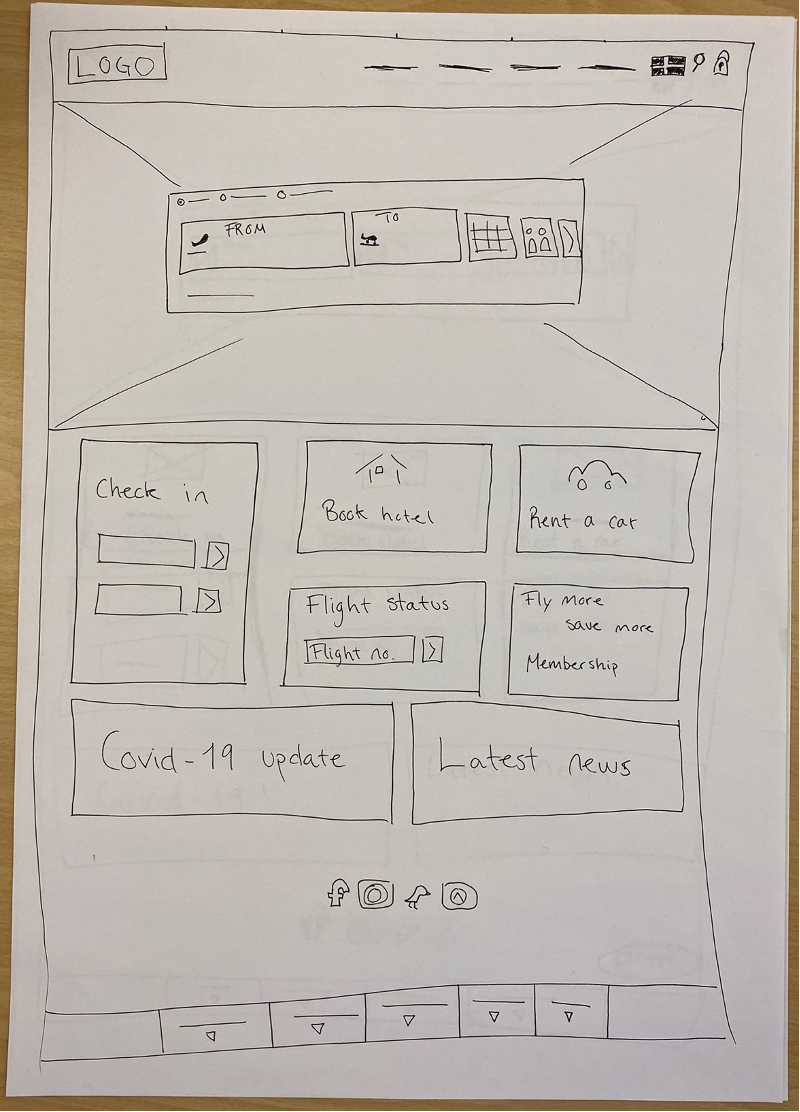 LOGO
FROM
TO
Check in
Book hotel
Rent a car
Flight status
Flight no.
Fly more
save more
Membership
Covid-19 update
Latest news